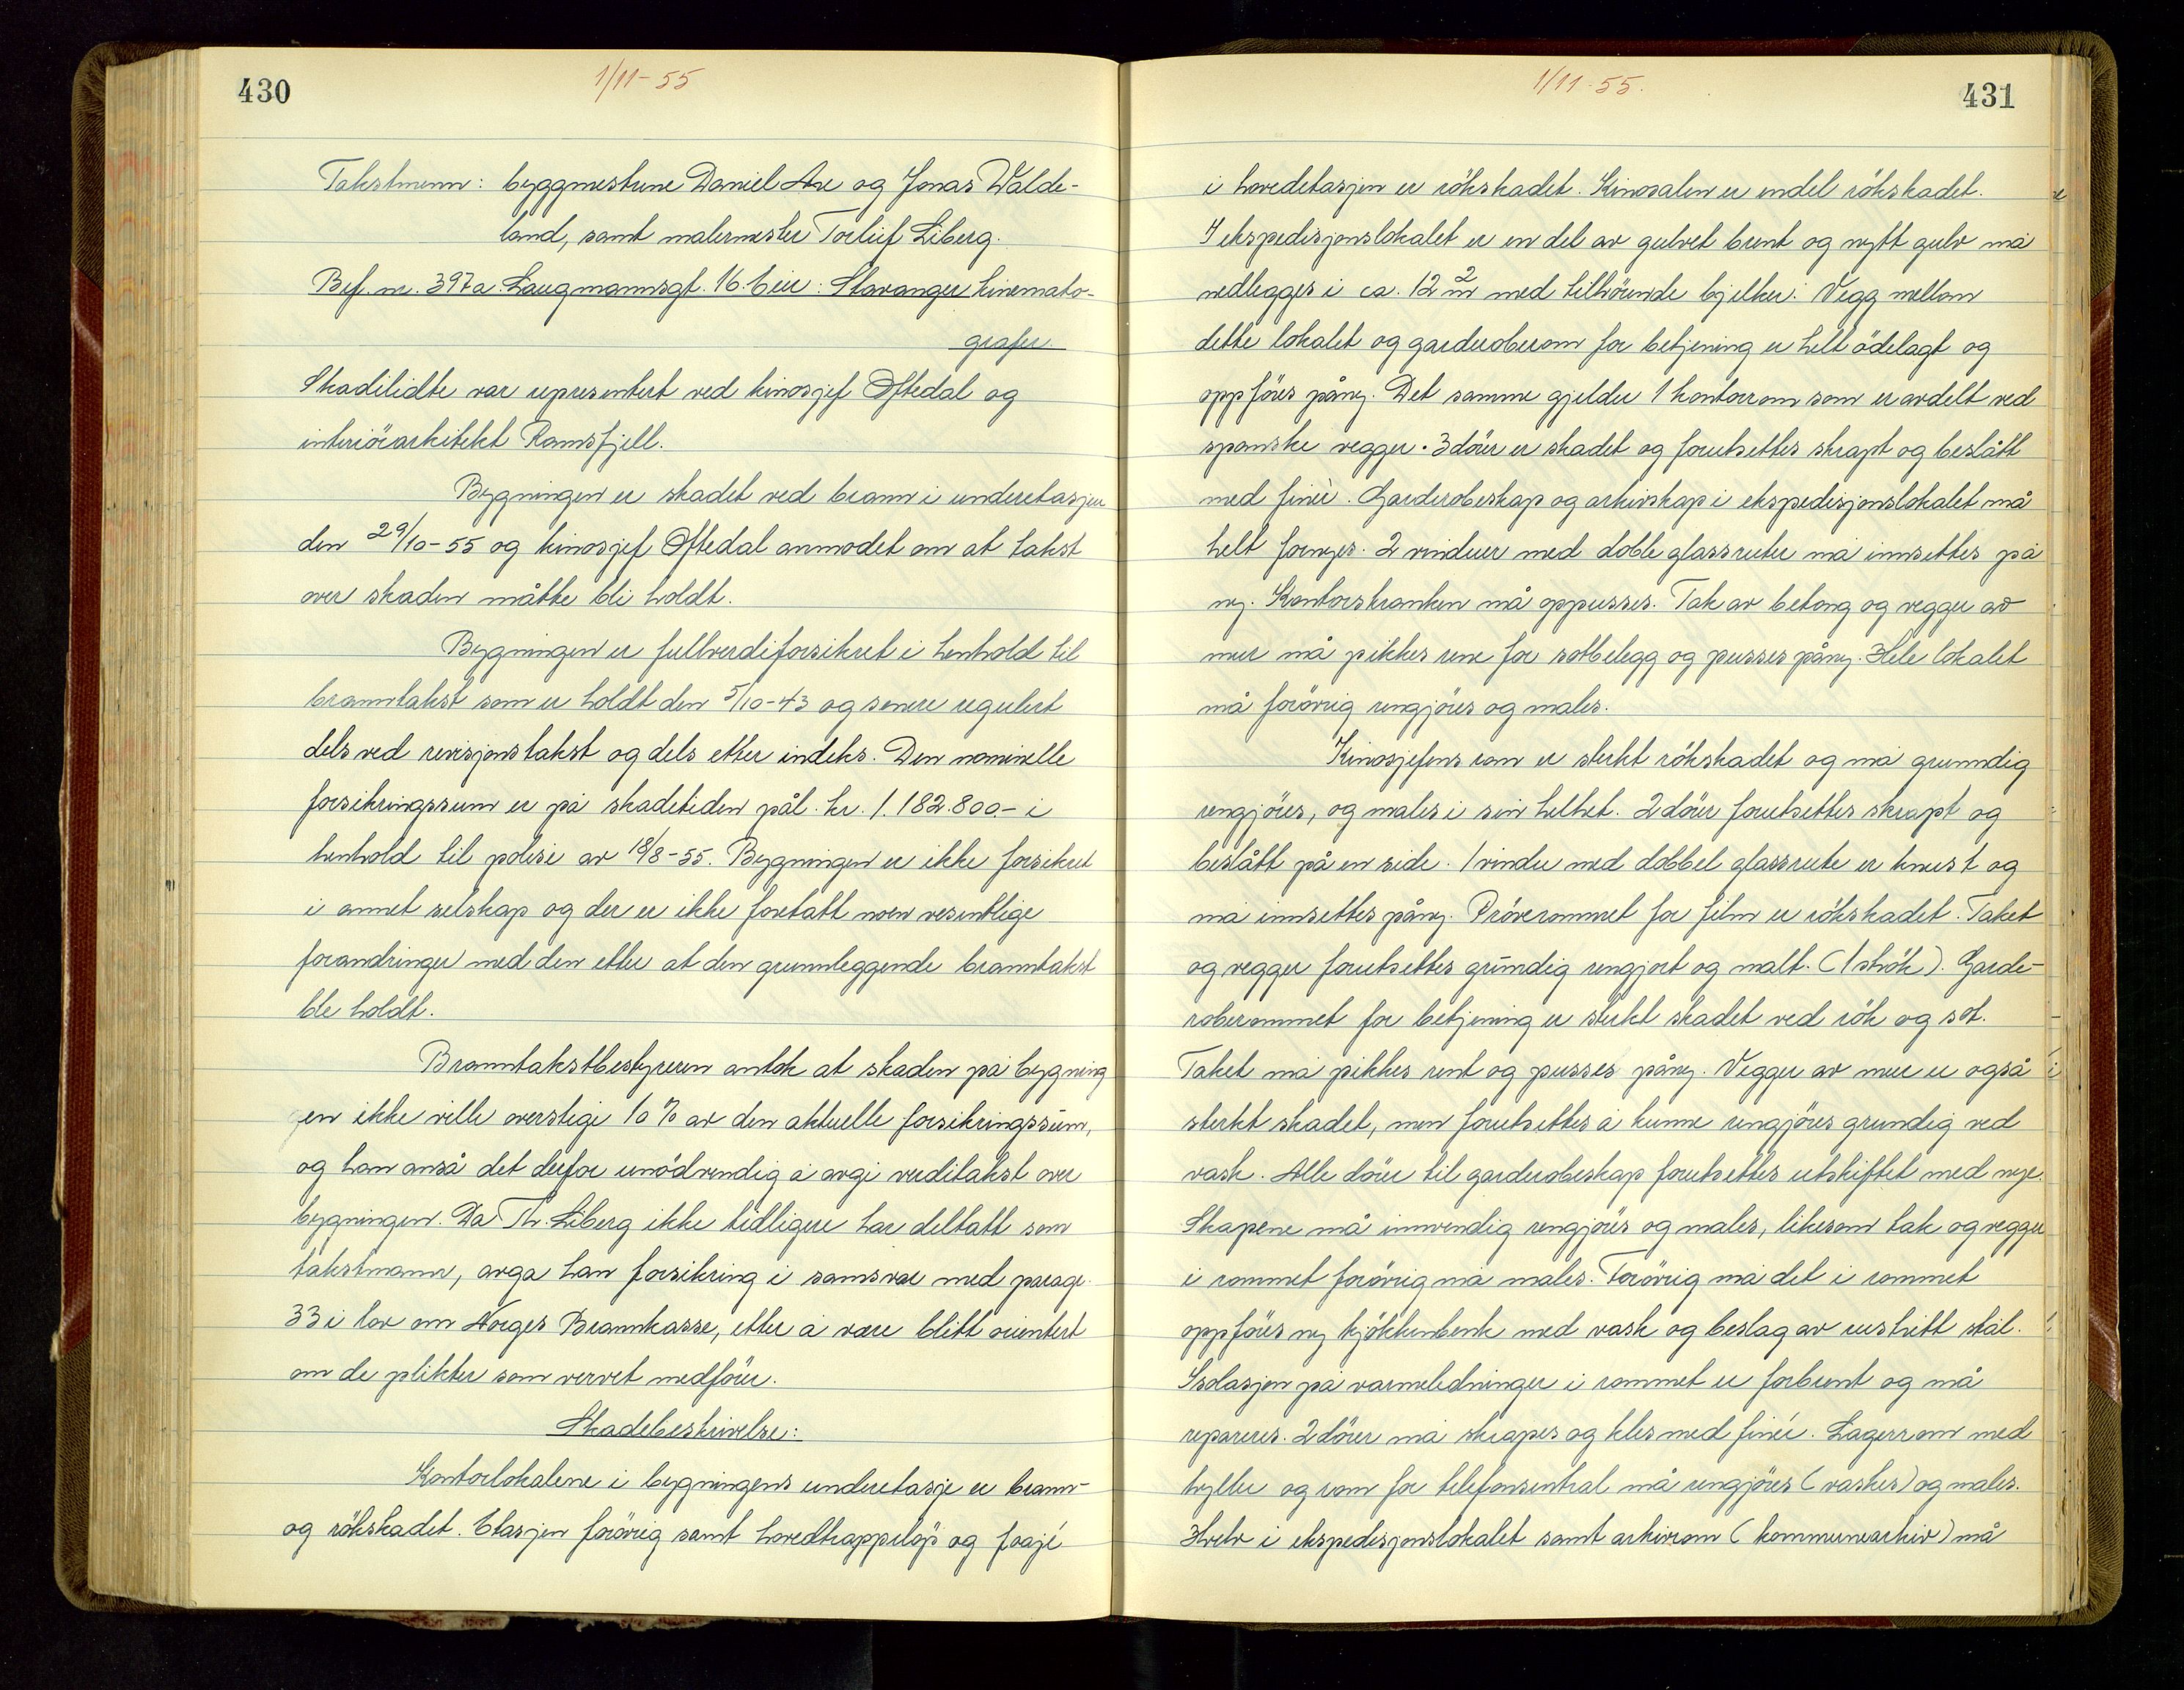 430
1/11-55
Takstmenn: byggmestrene Daniel Axe og Jonas Walde-
land, samt malermester Torleif Liberg.
Bef. nr. 397a. Laugmannsgt. 16. Eier: Stavanger kinemato-
grafer.
Skadelidte var representert ved kinosjef Oftedal og
interiörarkitekt Ramsfjell.
Bygningen er skadet ved brann i underetasjen
den 29/10-55 og kinosjef Oftedal anmodet om at takst
over skaden måtte bli holdt.
Bygningen er fullverdiforsikret i henhold til
branntakst som er holdt den 5/10-43 og senere regulert
dels ved revisjonstakst og dels etter indeks. Den nominelle
forsikringssum er på skadetiden pål. kr. 1.182.800.- i
henhold til polise av 18/8-55. Bygningen er ikke forsikret
i annet selskap og der er ikke foretatt noen vesentlige
forandringer med den etter at den grunnleggende branntakst
ble holdt.
Branntakstbestyreren antok at skaden på bygning
en ikke ville overstige 10% av den aktuelle forsikringssum,
og han anså det derfor unödvendig å avgi verditakst over
bygningen. Da Th. Liberg ikke tidligere har deltatt som
takstmann, avga han forsikring i samsvar med paragr.
33 i lov om Norges Brannkasse, etter å være blitt orientert
om de plikter som vervet medförer.
Skadebeskrivelse:
Kontorlokalene i bygningens underetasje er brann-
og rökskadet. Etasjen forövrig samt hovedtrappelöp og foajé
1/11-55.
431
i hovedetasjen er rökskadet. Kinosalen er endel rökskadet.
I ekspedisjonslokalet er en del av gulvet brent og nytt gulv må
nedlegges i ca. 12 m2 med tilhörende bjelker. Vegg mellom
dette lokalet og garderoberom for betjening er helt ödelagt og
oppföres påny. Det samme gjelder 1 kontorrom som er avdelt ved
spanske vegger. 3 dörer er skadet og forutsettes skrapt og beslått
med finèr. Garderobeskap og arkivskap i ekspedisjonslokalet må
helt fornyes. 2 vinduer med doble glassruter må innsettes på
ny. Kontorskranken må oppusses. Tak av betong og vegger av
mur må pikkes rene for sotbelegg og pusses påny. Hele lokalet
må forövrig rengjöres og males.
Kinosjefens rom er sterkt rökskadet og må grunndig
rengjöres, og males i sin helhet. 2 dörer forutsettes skrapt og
beslått på en side. 1 vindu med dobbel glassrute er knust og
må innsettes påny. Pröverommet for film er rökskadet. Taket
og vegger forutsettes grundig rengjort og malt. (1 strök). Garde-
roberommet for betjening er sterkt skadet ved rök og sot.
Taket må pikkes rent og pusses påny. Vegger av mur er også
sterkt skadet, men forutsettes å kunne rengjöres grundig ved
vask. Alle dörer til garderobeskap forutsettes utskiftet med nye.
Skapene må innvendig rengjöres og males, likesom tak og vegger
i rommet forövrig må males. Forövrig må det i rommet
oppföres ny kjökkenbenk med vask og beslag av rustfritt stål.
Isolasjon på varmeledninger i rommet er forbrent og må
repareres. 2 dörer må skrapes og kles med finér. Lagerrom med
hyller og rom for telefonsentral må rengjöres (vaskes) og males.
Hvelv i ekspedisjonslokalet samt arkivrom (kommunearkiv) må